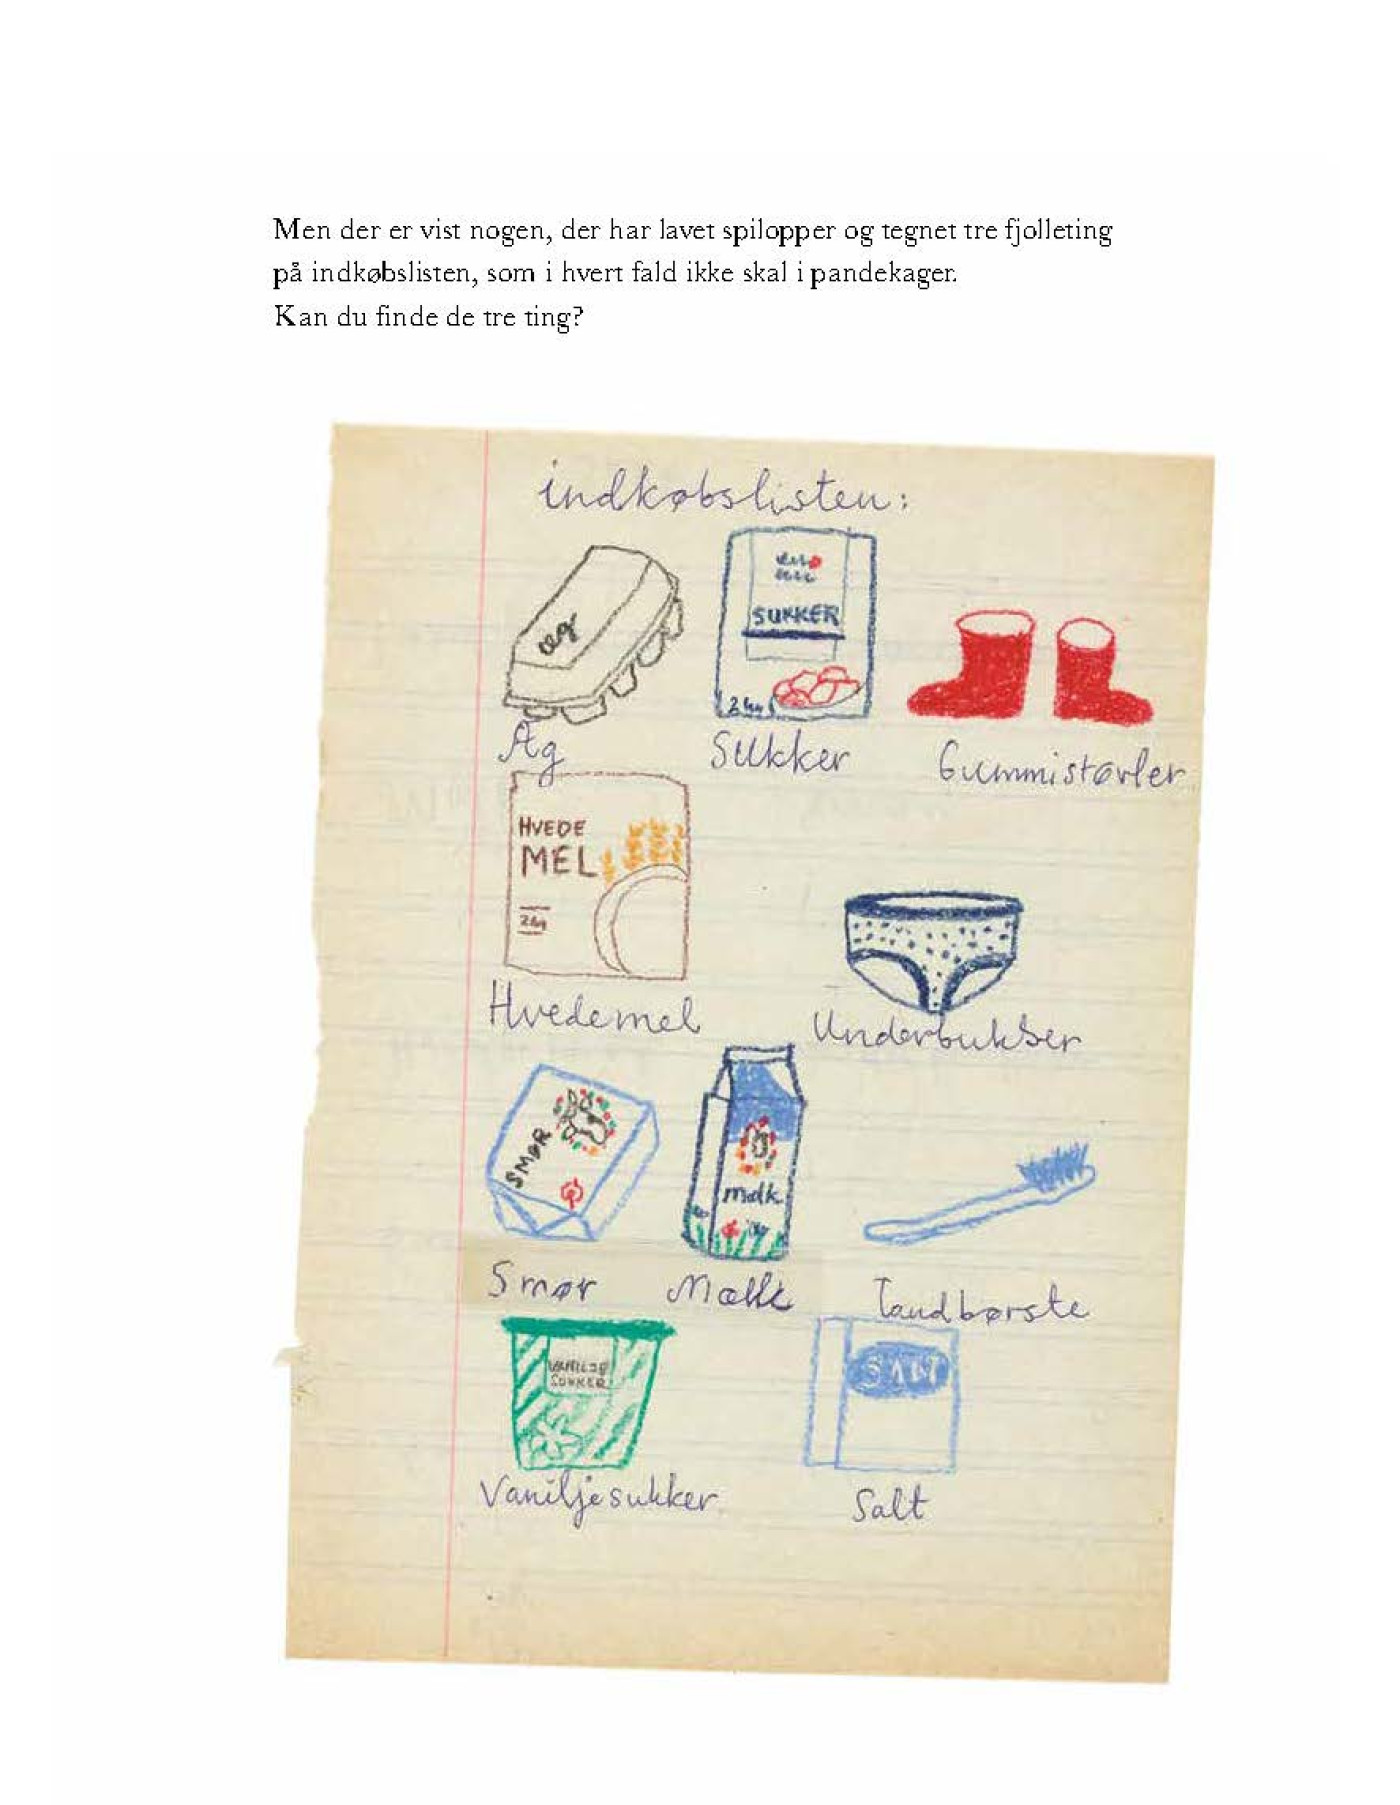 Men der er vist nogen, der har lavet spilopper og tegnet tre fjolleting
på indkøbslisten, som i hvert fald ikke skal i pandekager.
Kan du finde de tre ting?
indkøbslisten:
æg
SUKKER
2 kg
Æg
Sukker
Gummistøvler
HVEDE
MEL
2 kg
Hvedemel
Underbukser
SMØR
mælk
Smør
Mælk
Tandbørste
VANILJE
SUKKER
SALT
Vaniljesukker
Salt